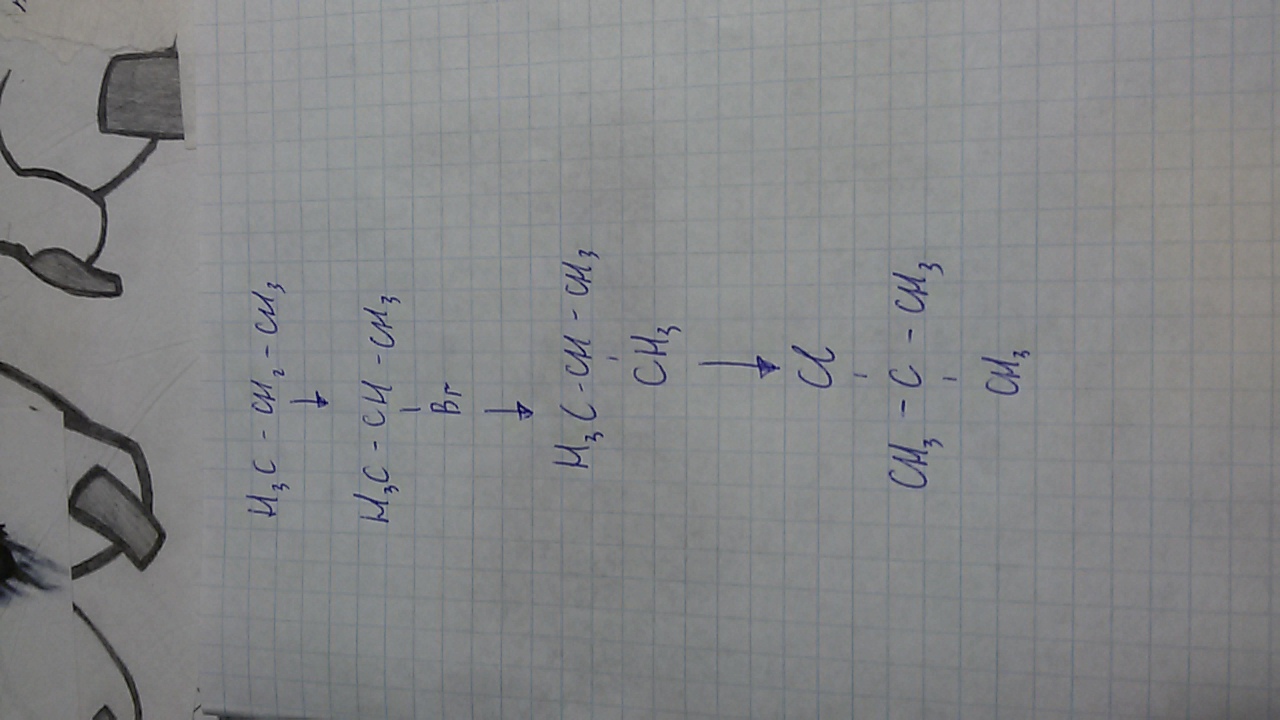 H₃C - CH₂ - CH₃
↓
H₃C - CH - CH₃
|
Br
↓
H₃C - CH - CH₃
|
CH₃
↓
Cl
|
CH₃ - C - CH₃
|
CH₃